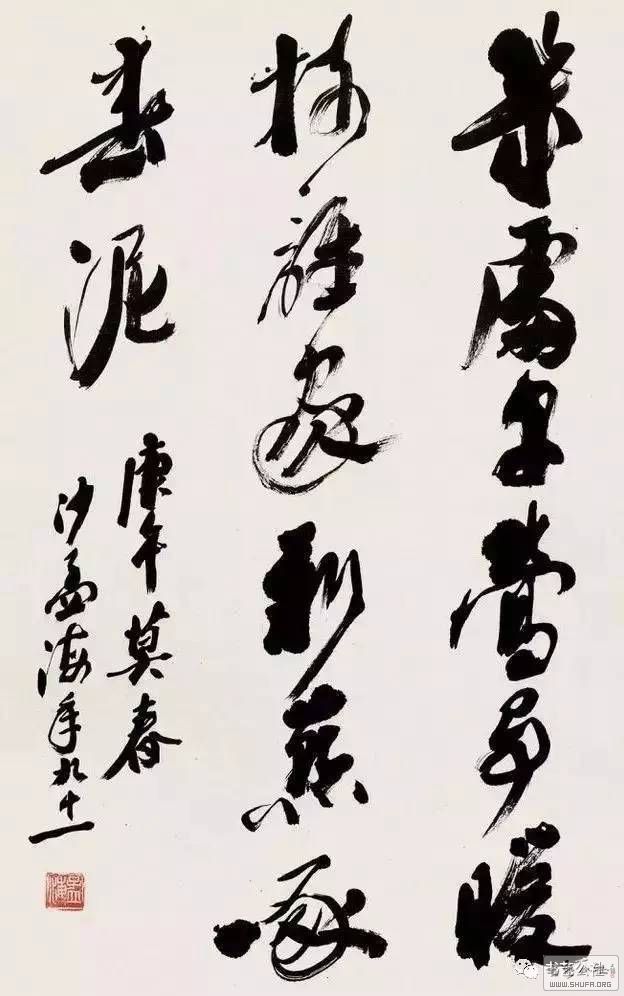 幾處早鶯爭暖
樹誰家新燕啄
春泥
庚午莫春
沙孟海年九十一
孟海
书艺公社
WWW.SHUFA.ORG